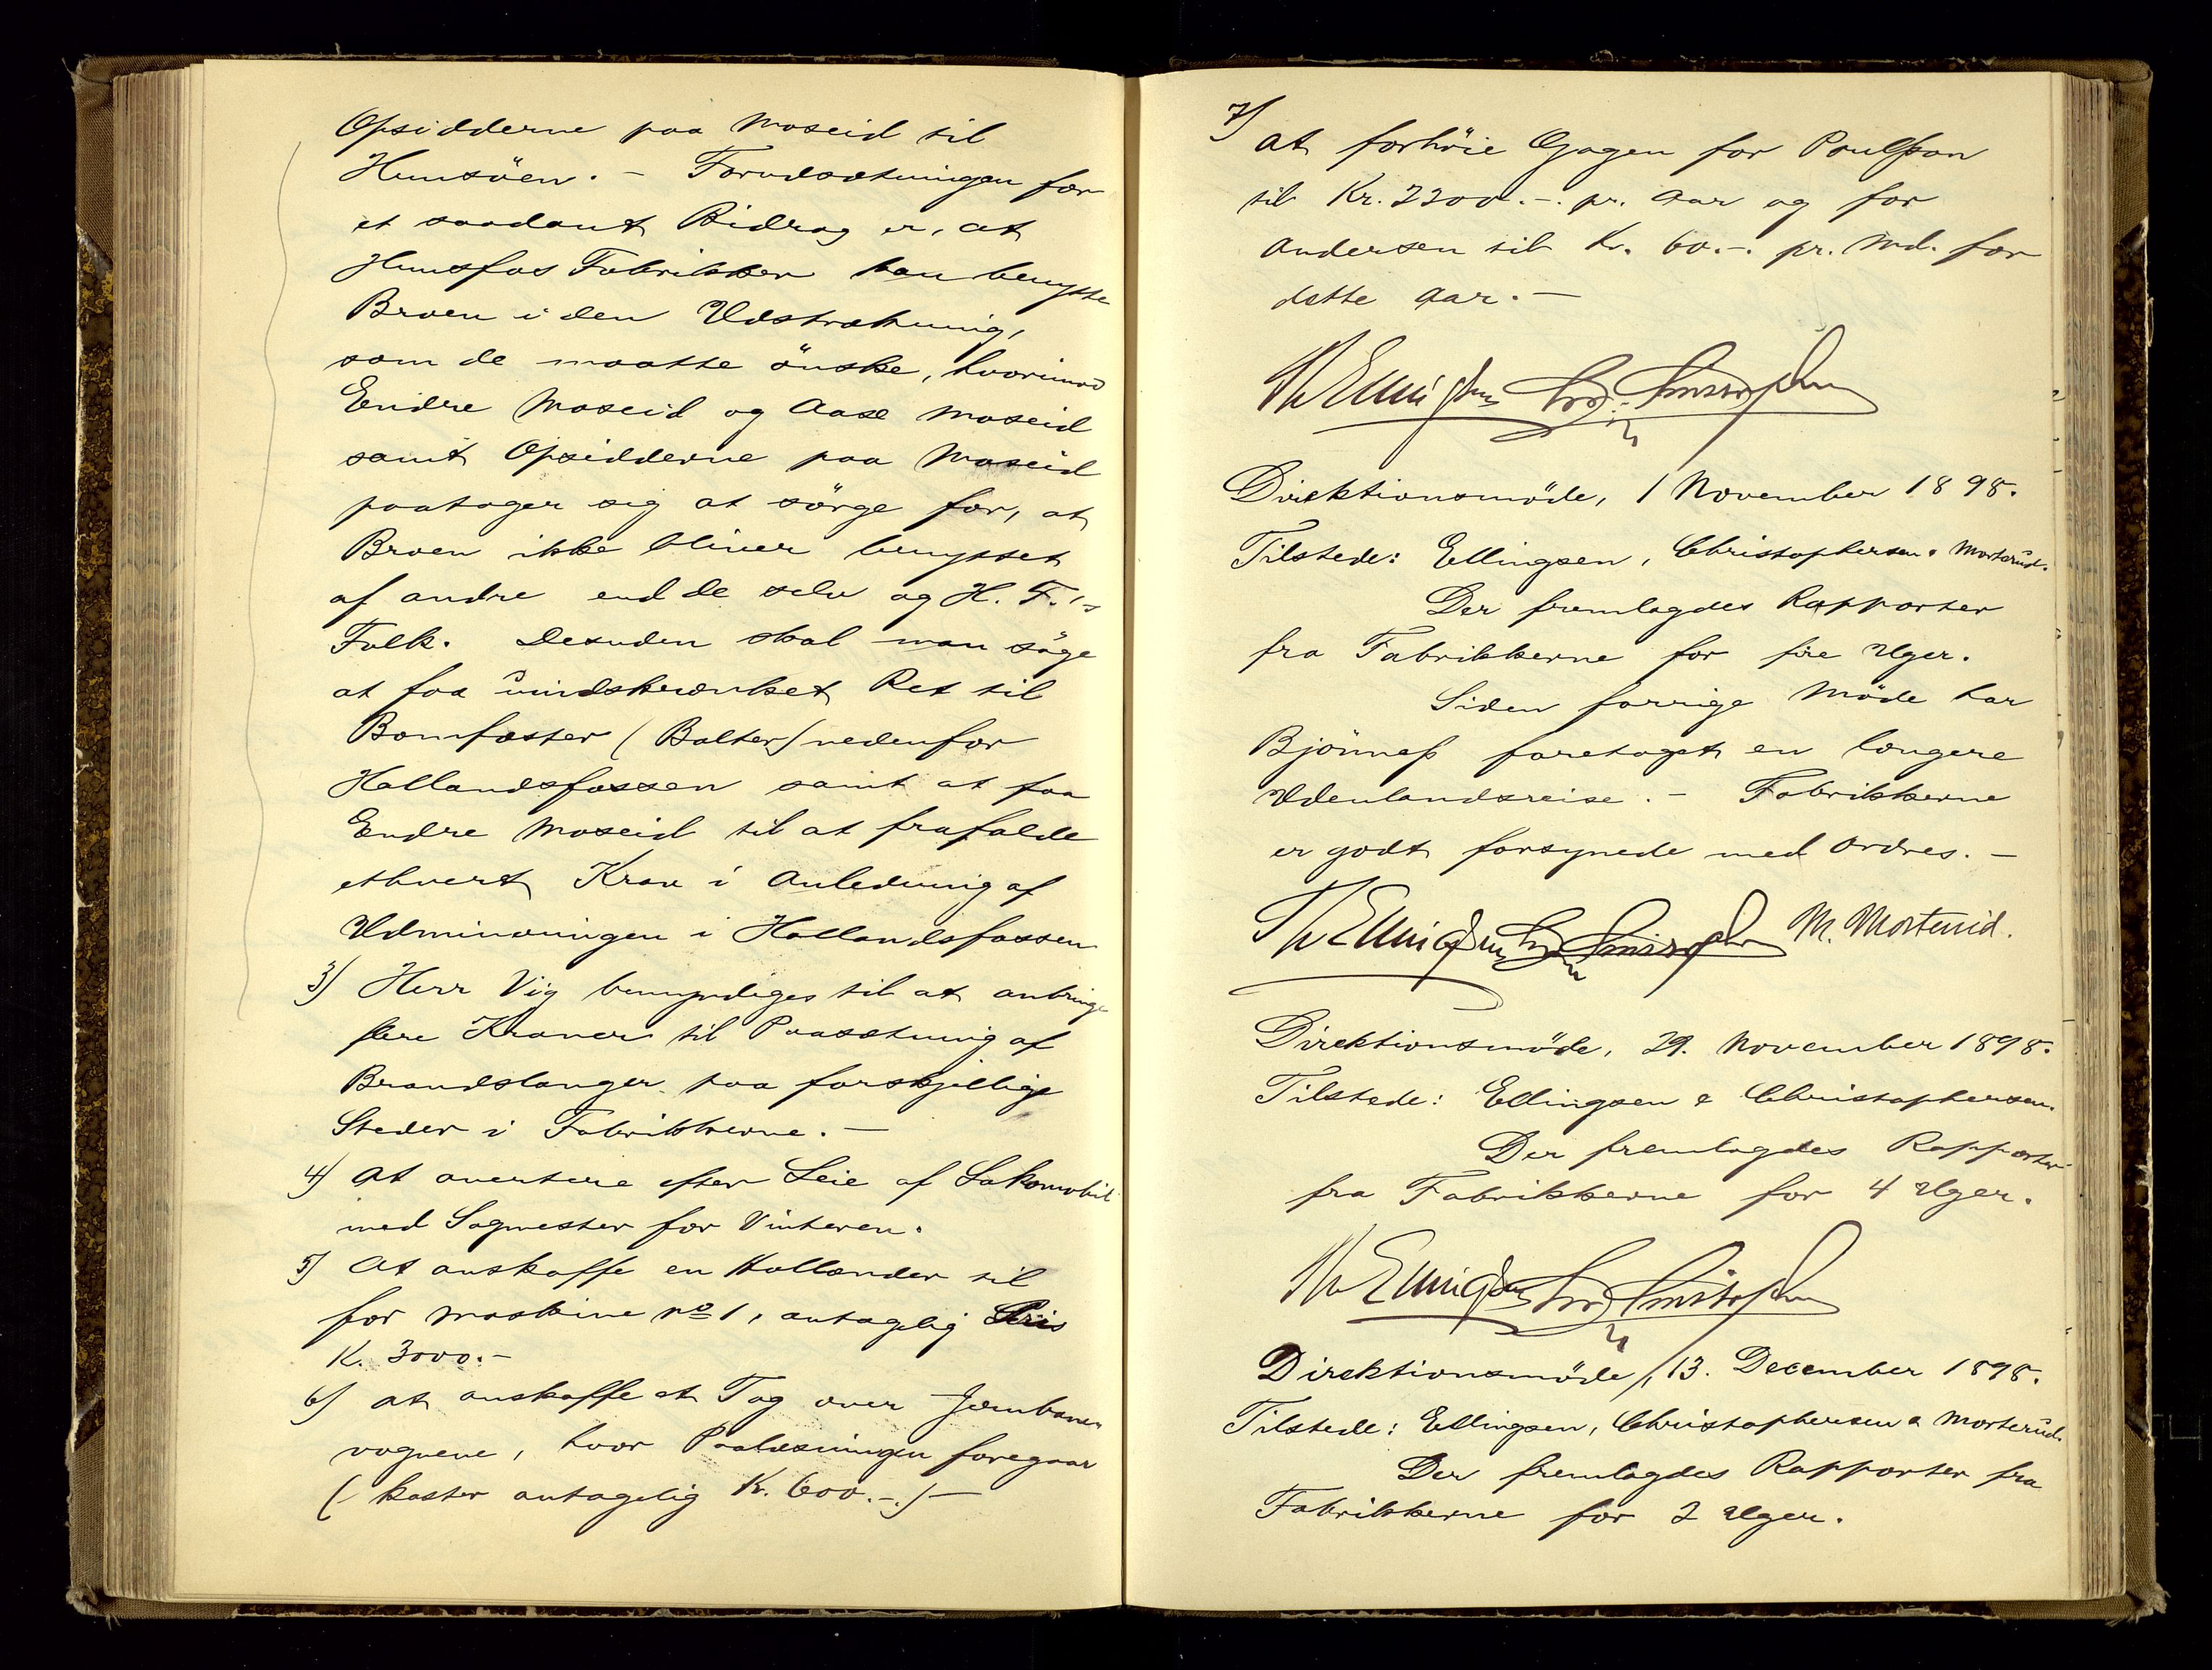 Opsidderne paa Moseid til
Hunsöen. – Forudsætningen for
et saadant Bidrag er, at
Hunsfos Fabrikker kan benytte
Broen i den Udstrækning,
som de maatte önske, hvorimod
Endre Moseid og Aase Moseid
samt Opsidderne paa Moseid
paatager sig at sörge for, at
Broen ikke bliver benyttet
af andre end de selv og H. F.'s
Folk. Desuden skal man söge
at faa uindskrænket Ret til
Bomfæster (Bolter) nedenfor
Hallandsfossen samt at faa
Endre Moseid til at frafalde
ethvert Krav i Anledning af
Udmineringen i Hallandsfossen
3) Herr Vig bemyndiges til at anbringe
flere Kraner til Paasætning af
Brandslanger paa forskjellige
Steder i Fabrikkerne. –
4) At avertere efter Leie af Lokomobil
med Sagmester for Vinteren.
5) At anskaffe en Hollænder til
for Maskine No 1, antagelig Pris
K. 3000.–
6) at anskaffe et Tag over Jernbane
vognene, hvor Paalæsningen foregaar
(– koster antagelig Kr. 600.–.) –
7) at forhöie Gagen for Poulsson
til Kr. 2200.–. pr. Aar og for
Andersen til Kr. 60.–. pr. Md. for
dette Aar. –
Th Ellingsen Chr. Christophersen
Direktionsmöde, 1 November 1898.
Tilstede: Ellingsen, Christophersen & Morterud.
Der fremlagdes Rapporter
fra Fabrikkerne for fire Uger.
Siden forrige Möde har
Bjönness foretaget en længere
Udenlandsreise. – Fabrikkerne
er godt forsynede med Ordres. –
Th Ellingsen Chr. Christophersen M. Morterud.
Direktionsmöde, 29. November 1898.
Tilstede: Ellingsen & Christophersen.
Der fremlagdes Rapporter
fra Fabrikkerne for 4 Uger.
Th Ellingsen Chr. Christophersen
Direktionsmöde, 13. December 1898.
Tilstede: Ellingsen, Christophersen & Morterud.
Der fremlagdes Rapporter fra
Fabrikkerne for 2 Uger.